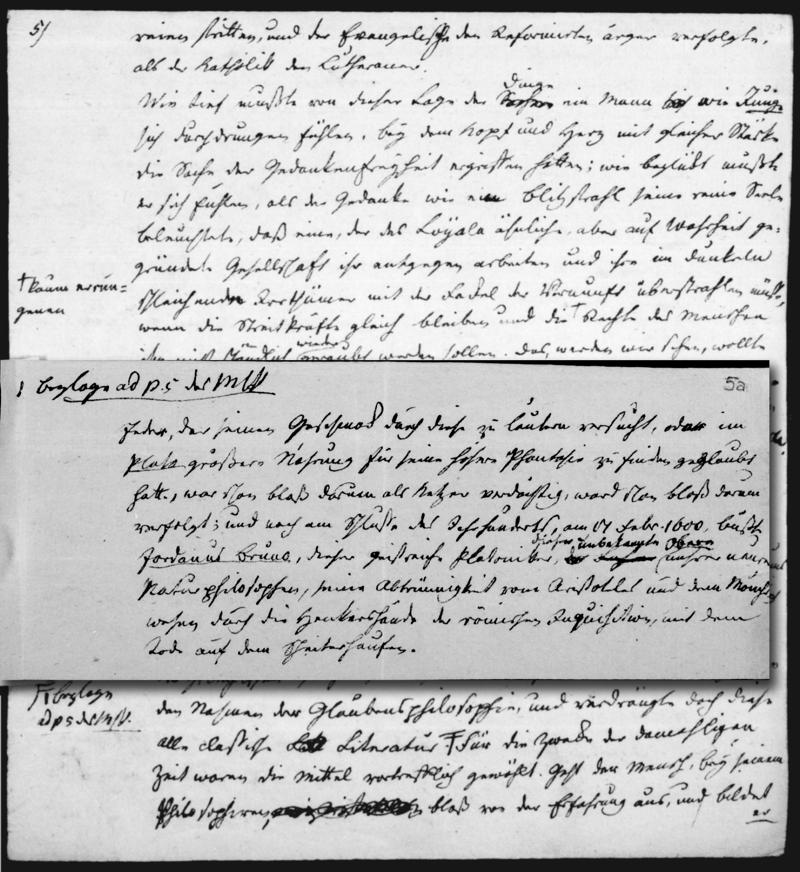 5/
reinen stritten, und der Evangelische den Reformirten ärger verfolgte,
als der Katholik den Lutheraner.
Wie tief mußte von dieser Lage der Dinge ein Mann wie Junge
sich durchdrungen fühlen, bey dem Kopf und Herz mit gleicher Stärke
die Sache der Gedankenfreyheit ergriffen hatten; wie beglükt mußte
er sich fühlen, als der Gedanke wie ein Blitzstrahl seine reine Seele
beleuchtete, daß eine, der des Loyala ähnliche, aber auf Wahrheit ge-
gründete Gesellschaft ihr entgegen arbeiten und ihre im dunkeln
schleichenden Irrthümer mit der Fackel der Vernunft überstrahlen müßte,
wenn die Streitkräfte gleich bleiben und die † Rechte des Menschen
† kaum errun-
genen
ihm nicht wieder geraubt werden sollen. Das, werden wir sehen, wollte
Beylage ad p. 5 des MSS
5a
Jeder, der seinen Geschmak durch diese zu läutern versucht, oder im
Plato größere Nahrung für seine höhere Phantasie zu finden geglaubt
hatte, war schon bloß darum als Ketzer verdächtig, ward schon bloß darum
verfolgt; und noch am Schlusse des Jahrhunderts, am 17 Febr. 1600, büßte
Jordanus Bruno, dieser geistreiche Platoniker, dieser unbekannte Obere unsrer neueren
Naturphilosophen, seine Abtrünnigkeit vom Aristoteles und dem Mönchs
wesen durch die Henkershände der römischen Inquisition, mit dem
Tode auf dem Scheiterhaufen.
Beylage
ad p 5 des MSS.
den Nahmen der Glaubensphilosophie, und verdrängte doch diese
alle classische Literatur Für die Zwecke der damahligen
Zeit waren die Mittel vortreflich gewählt. Geht der Mensch, bey seinem
Philosophiren, bloß von der Erfahrung aus, und bildet
er